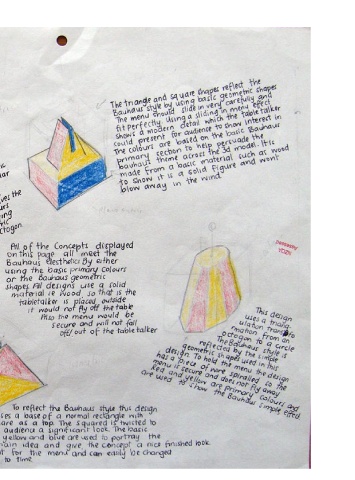 The triangle and square shapes reflect the
Bauhaus style by using basic geometric shapes
The menu should slide in very carefully and
fit perfectly. Using a sliding in menu effect
shows a modern detail which the table talker
could present for audience to show interest in
The colours are based on the basic Bauhaus
primary section to help persuade the
bauhaus theme across the 3d model. It is
made from a basic material such as wood
to show it is a solid figure and wont
blow away in the wind
All of the Concepts displayed
on this page all meet the
Bauhaus aesthetics by either
using the basic primary colours
or the Bauhaus geometric
shapes. All designs use a solid
material ie wood so that is the
tabletalker is placed outside
it would not fly off the table
Also the menu would be
secure and will not fall
off/out of the table talker
This design
uses a
from an
octagon to a circle
The Bauhaus style is
reflected by the simple
geometric shapes used in this
design. To hold the menu the design
has a piece of wire spiralled so the
menu is secure and does not fly away
Red and yellow are primary colours and
are used to show the Bauhaus simple effect.
To reflect the Bauhaus style this design
ses a base of a normal rectangle with
are as a top. The squared is twisted to
audience a significant look. The basic
yellow and blue are used to portray the
ain idea and give the concept a nice finished look
t for the menu and can easily be changed
to time